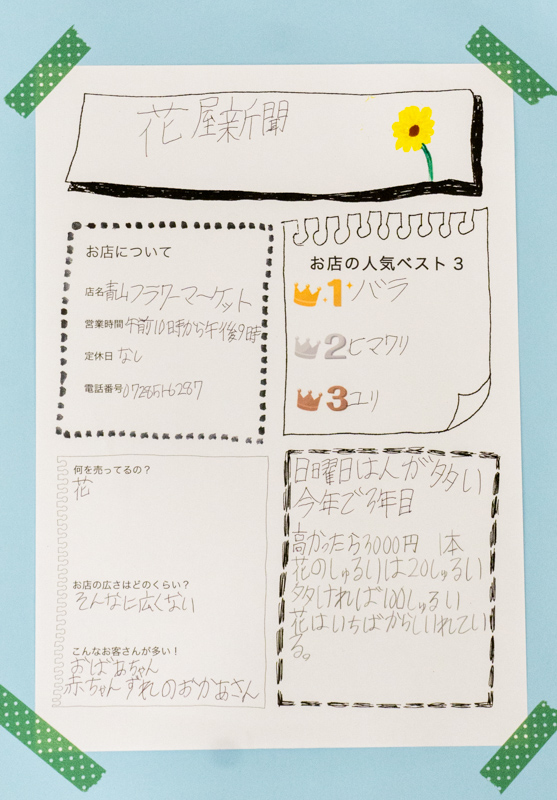 花屋新聞
お店について
店名 青山フラワーマーケット
営業時間 午前10時から午後9時
定休日 なし
電話番号 0728516287
お店の人気ベスト3
1 バラ
2 ヒマワリ
3 ユリ
何を売ってるの？
花
お店の広さはどのくらい？
そんなに広くない
こんなお客さんが多い！
おばあちゃん
赤ちゃんずれのおかあさん
日曜日は人が多い
今年で3年目
高かったら3000円 1本
花のしゅるいは20しゅるい
多ければ100しゅるい
花はいちばからしいれてい
る。